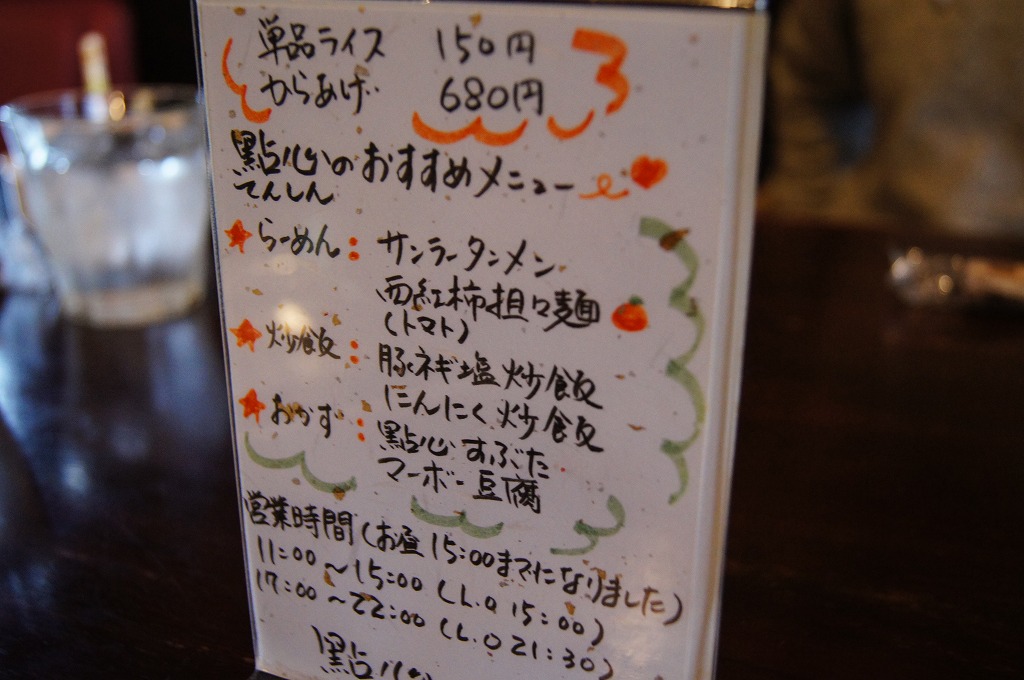 単品ライス 150円
からあげ 680円
點心のおすすめメニュー
てんしん
らーめん: サンラータンメン
西紅柿担々麺
(トマト)
炒飯: 豚ネギ塩炒飯
にんにく炒飯
おかず: 點心すぶた
マーボー豆腐
営業時間(お昼15:00までになりました)
11:00〜15:00(L.O 15:00)
17:00〜22:00(L.O 21:30)
點心